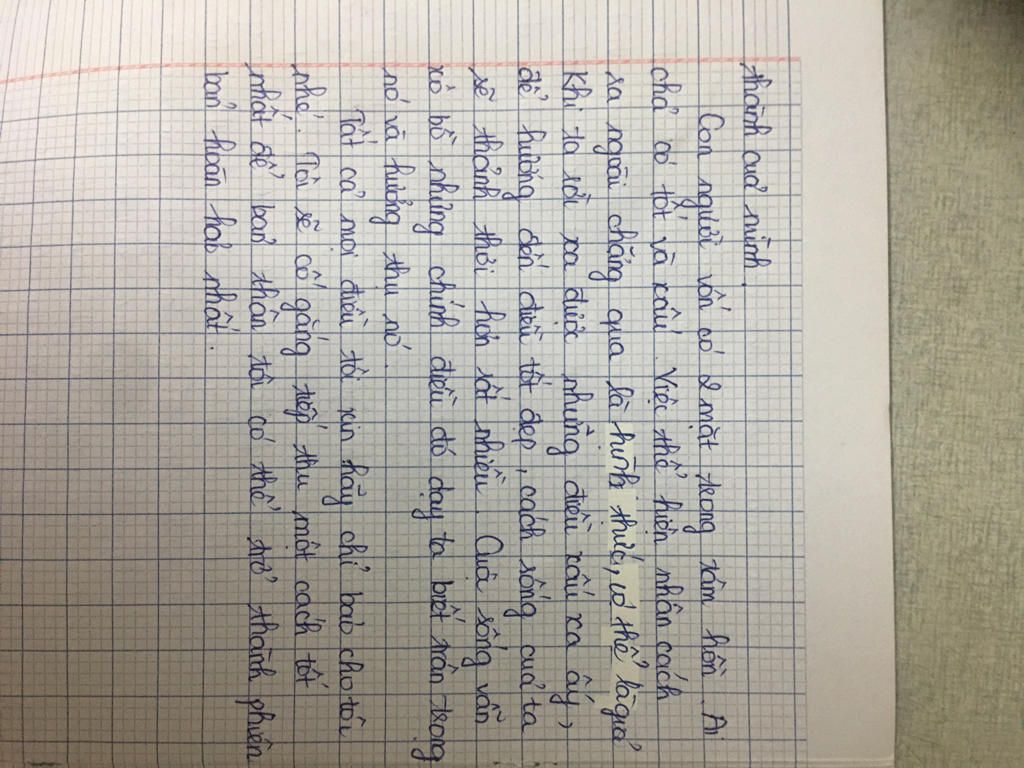 thành của mình.
Con người vốn có 2 mặt trong tâm hồn. Ai
chả có tốt và xấu. Việc thể hiện nhân cách
ra ngoài chẳng qua là hình thức, có thể là giả
Khi ta rời xa được những điều xấu xa ấy,
để hướng đến điều tốt đẹp, cách sống của ta
sẽ thảnh thơi hơn rất nhiều. Cuộc sống vẫn
xô bồ nhưng chính điều đó dạy ta biết trân trọng
nó và hưởng thụ nó.
Tất cả mọi điều tôi xin hãy chỉ bảo cho tôi
nhé. Tôi sẽ cố gắng tiếp thu một cách tốt
nhất để bản thân tôi có thể trở thành phiên
bản hoàn hảo nhất.